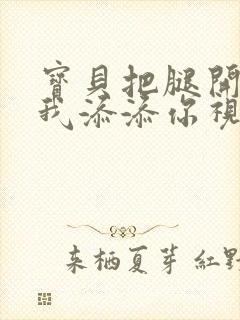 寶貝把腿開
我添添你視
来栖夏芽 紅野